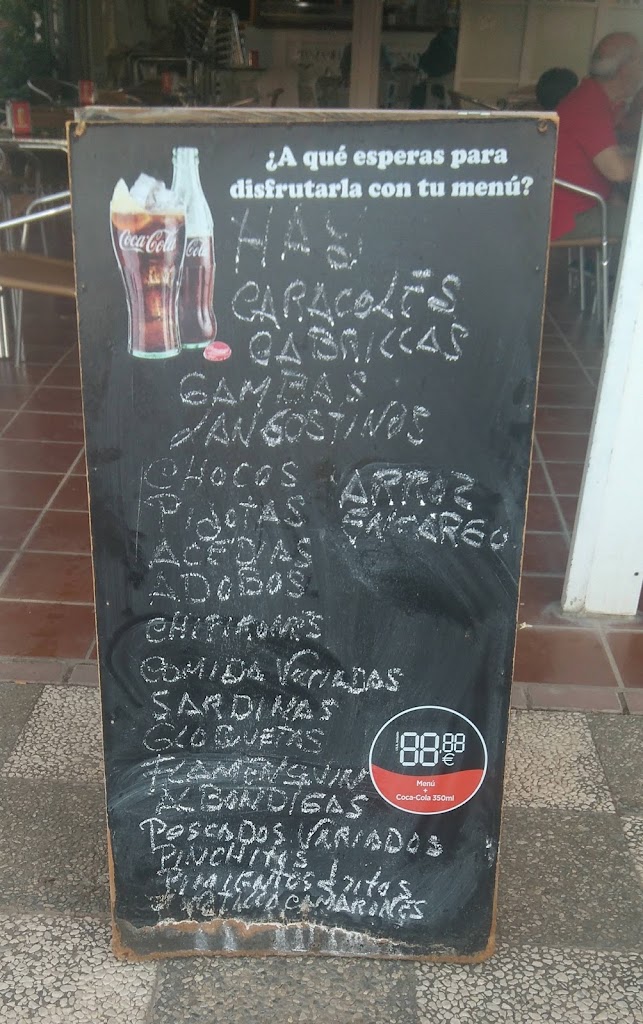 ¿A qué esperas para
disfrutarla con tu menú?
Coca-Cola
Cola
HAY
CARACOLES
CABRILLAS
GAMBAS
LANGOSTINOS
CHOCOS
PIJOTAS
ARROZ
ENCARGO
ACEDIAS
ADOBOS
CHIPIRONES
COMIDA VARIADAS
SARDINAS
CROQUETAS
FLAMENQUIN
ALBONDIGAS
88.88
€
Menú
+
Coca-Cola 350ml
POSCADOS VARIADOS
PINCHITOS
PIMIENTOS FRITOS
CAMARONES